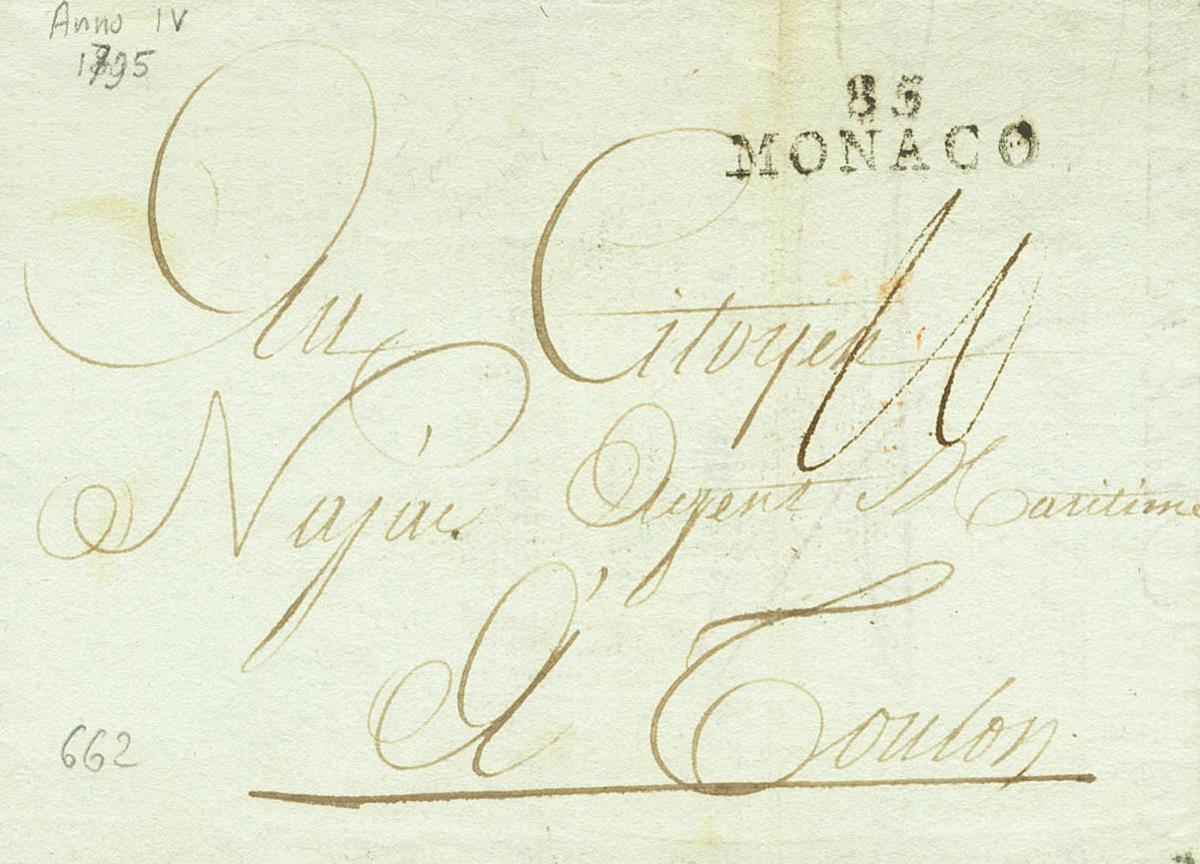 Anno IV
1795
85
MONACO
Au Citoyen
Najac Agent Maritime
A' Toulon
662